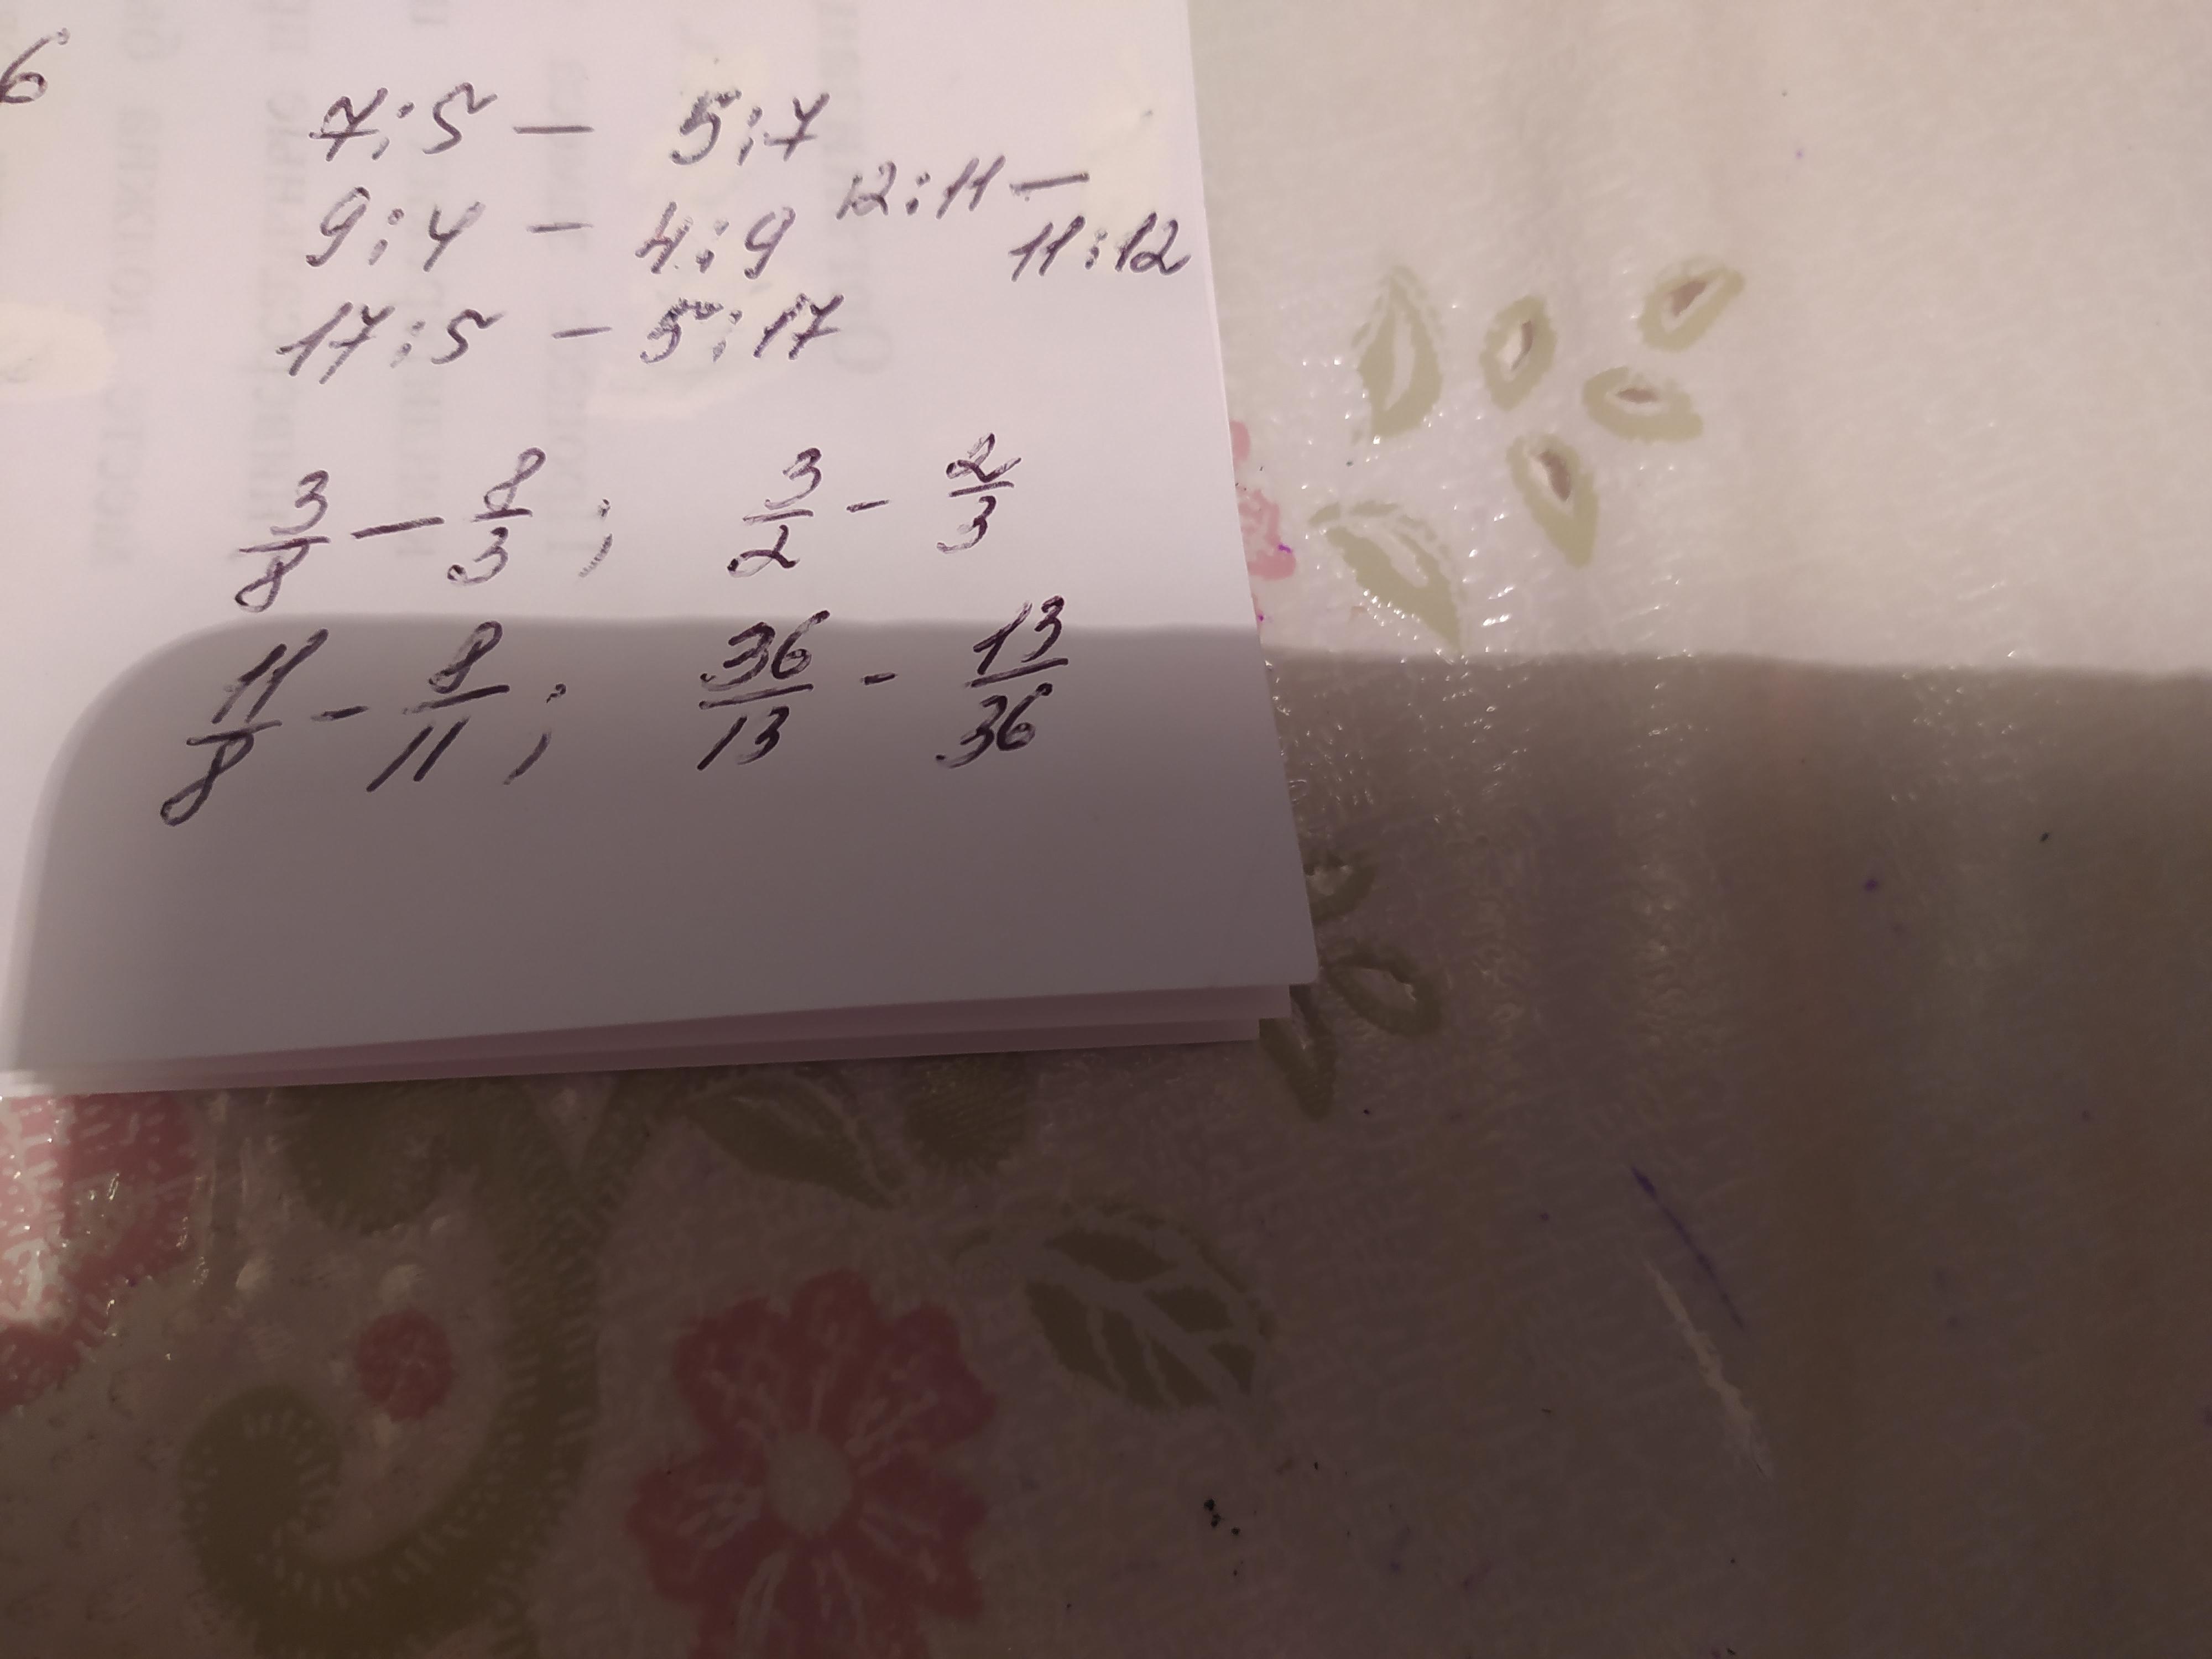 6
7:5 — 5:7
12:11 —
9:4 - 4:9
11:12
17:5 - 5:17
3/8 — 8/3 ; 3/2 - 2/3
11/8 - 8/11 ; 36/13 - 13/36